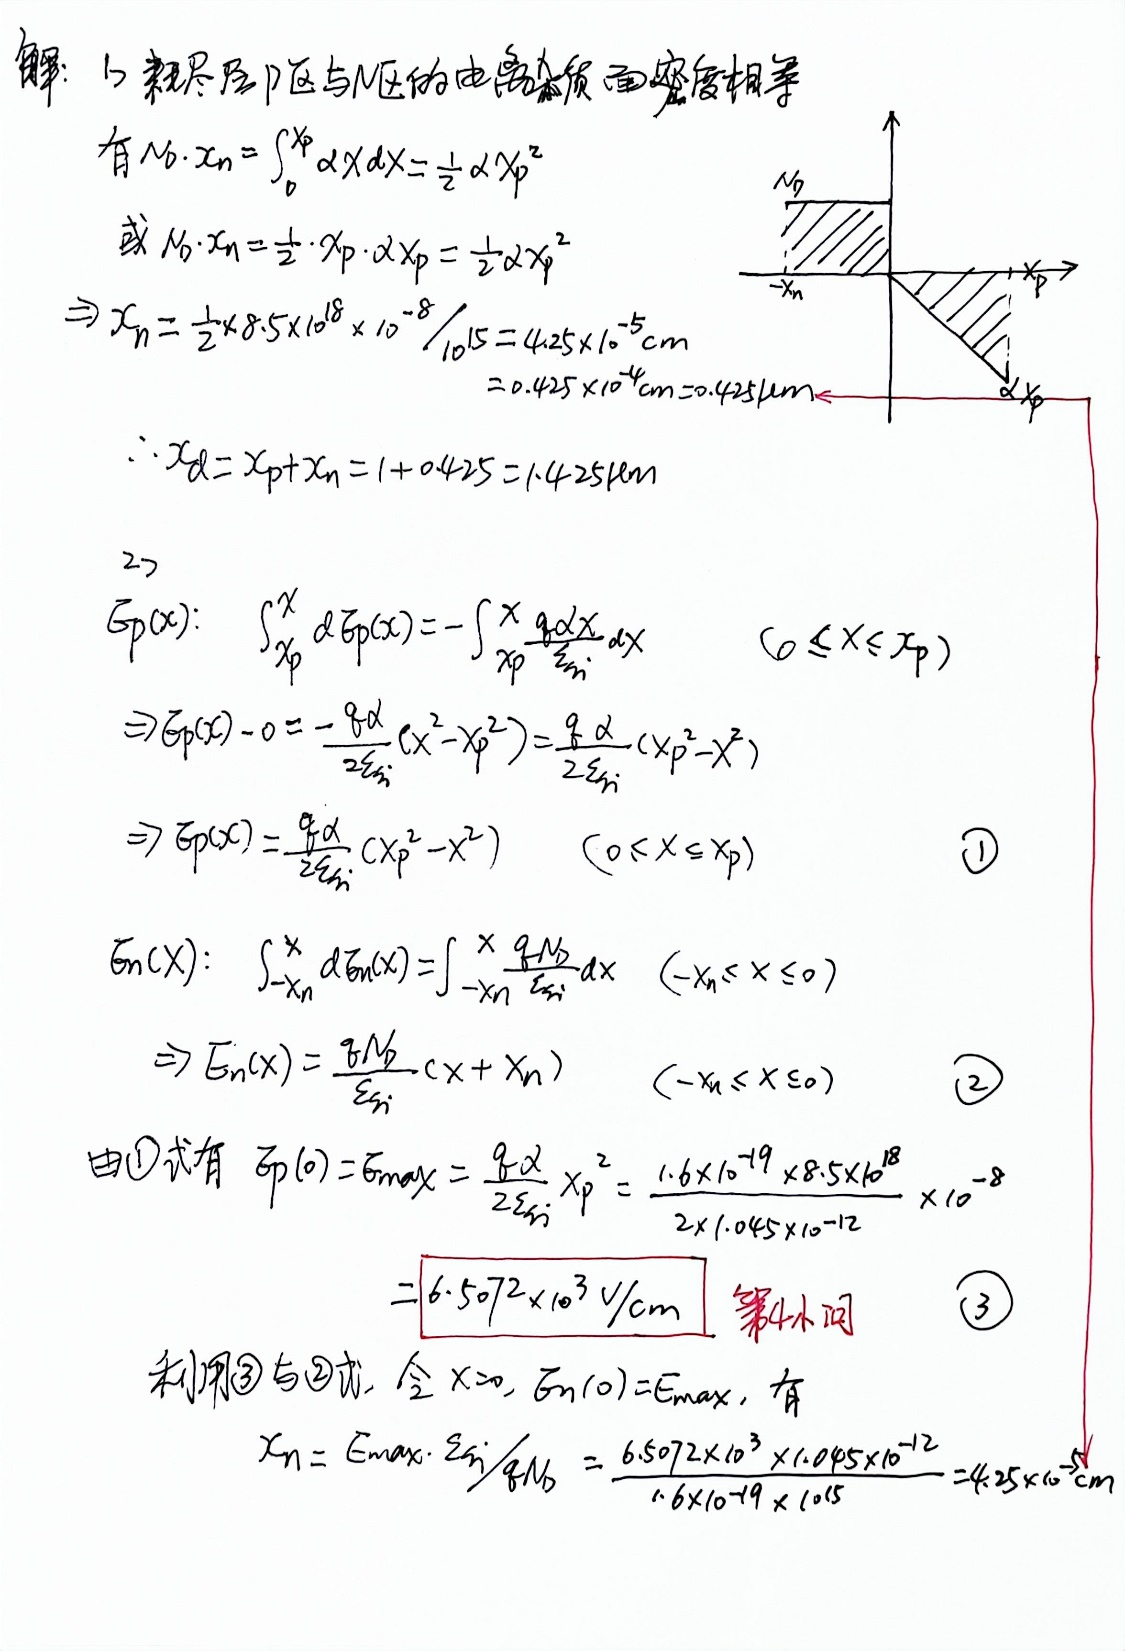 解: 1> 耗尽层P区与N区的电离杂质面密度相等
有 N_D·x_n = ∫_0^{x_p} αx dx = 1/2 αx_p^2
N_D
或 N_D·x_n = 1/2·x_p·αx_p = 1/2 αx_p^2
-x_n
x_p
⇒ x_n = 1/2 × 8.5×10^18 × 10^-8 / 10^15 = 4.25×10^-5 cm
= 0.425×10^-4 cm = 0.425μm
αx_p
∴ x_d = x_p + x_n = 1 + 0.425 = 1.425μm
2>
E_p(x): ∫_{x_p}^{x} dE_p(x) = -∫_{x_p}^{x} qαx/ε_si dx (0 ≤ x ≤ x_p)
⇒ E_p(x) - 0 = -qα/2ε_si (x^2 - x_p^2) = qα/2ε_si (x_p^2 - x^2)
⇒ E_p(x) = qα/2ε_si (x_p^2 - x^2) (0 ≤ x ≤ x_p) ①
E_n(x): ∫_{-x_n}^{x} dE_n(x) = ∫_{-x_n}^{x} qN_D/ε_si dx (-x_n ≤ x ≤ 0)
⇒ E_n(x) = qN_D/ε_si (x + x_n) (-x_n ≤ x ≤ 0) ②
由①式有 E_p(0) = E_max = qα/2ε_si x_p^2 = 1.6×10^-19 × 8.5×10^18 / 2×1.045×10^-12 × 10^-8
= 6.5072×10^3 V/cm 第4小问 ③
利用③与②式, 令 x=0, E_n(0) = E_max, 有
x_n = E_max·ε_si/qN_D = 6.5072×10^3 × 1.045×10^-12 / 1.6×10^-19 × 10^15 = 4.25×10^-5 cm